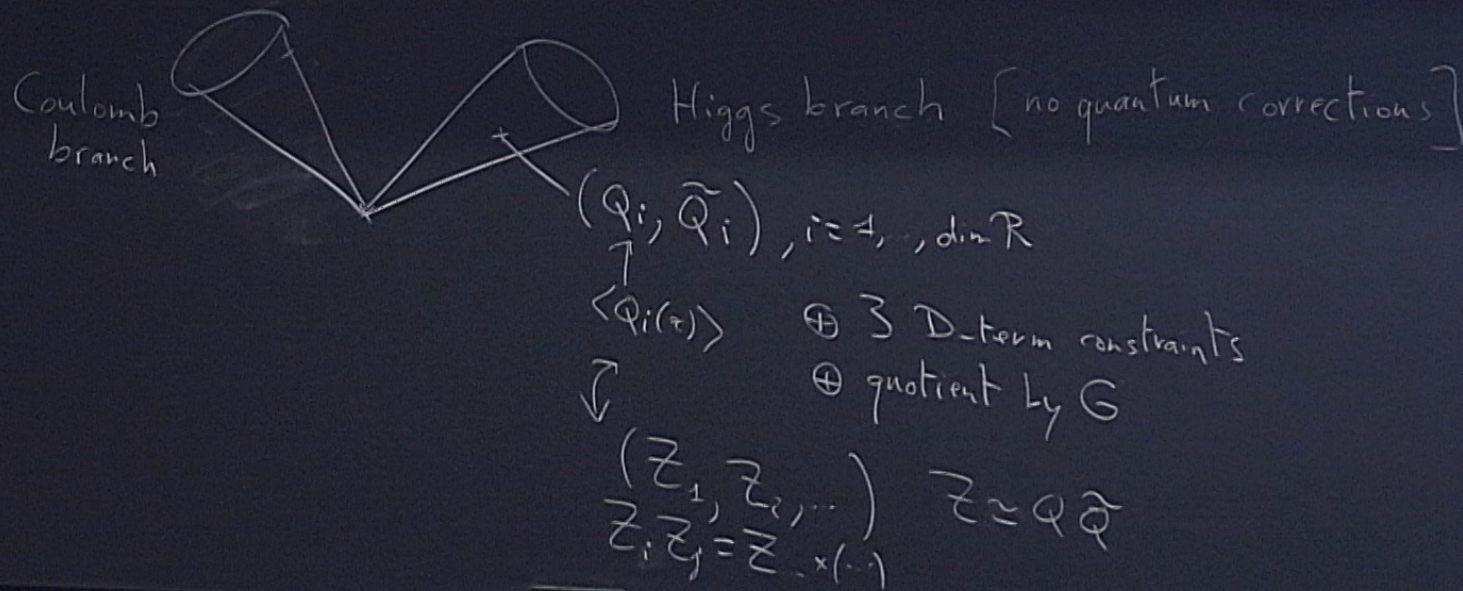 Coulomb
branch
Higgs branch [no quantum corrections]
(Qᵢ, Q̃ᵢ), i=1,..,dim R
↑
<Qᵢ(x)>
⊕ 3 D-term constraints
⊕ quotient by G
↕
(Z₁, Z₂,...) Z≃QQ̃
ZᵢZⱼ=Z_ ×(...)